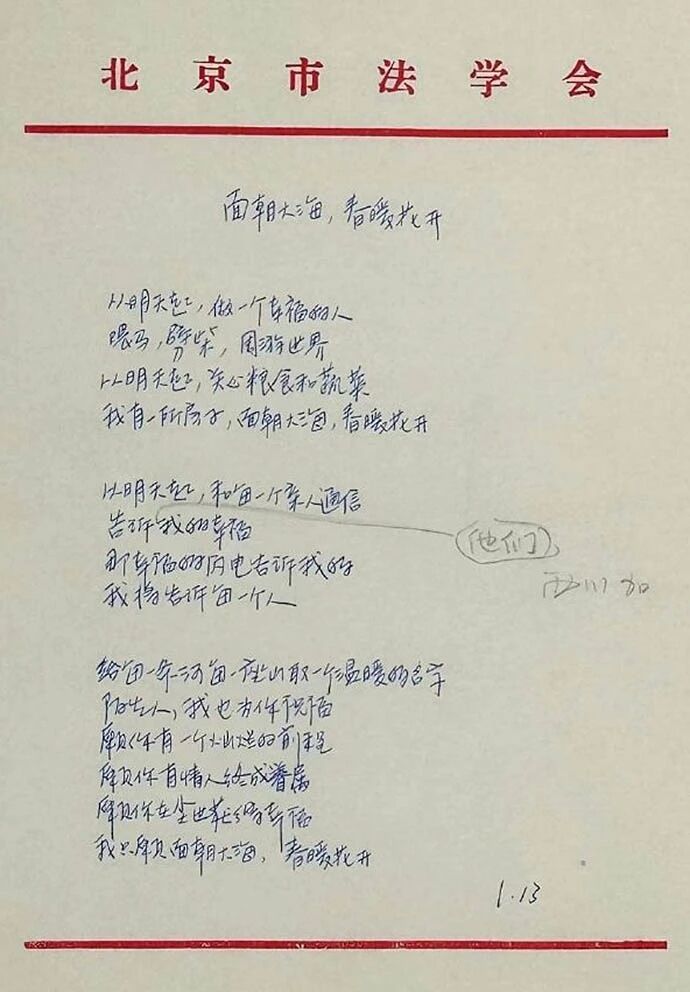 北京市法学会
面朝大海，春暖花开
从明天起，做一个幸福的人
喂马，劈柴，周游世界
从明天起，关心粮食和蔬菜
我有一所房子，面朝大海，春暖花开
从明天起，和每一个亲人通信
告诉我的幸福
他们
那幸福的闪电告诉我的
西川加
我将告诉每一个人
给每一条河每一座山取一个温暖的名字
陌生人，我也为你祝福
愿你有一个灿烂的前程
愿你有情人终成眷属
愿你在尘世获得幸福
我只愿面朝大海，春暖花开
1.13